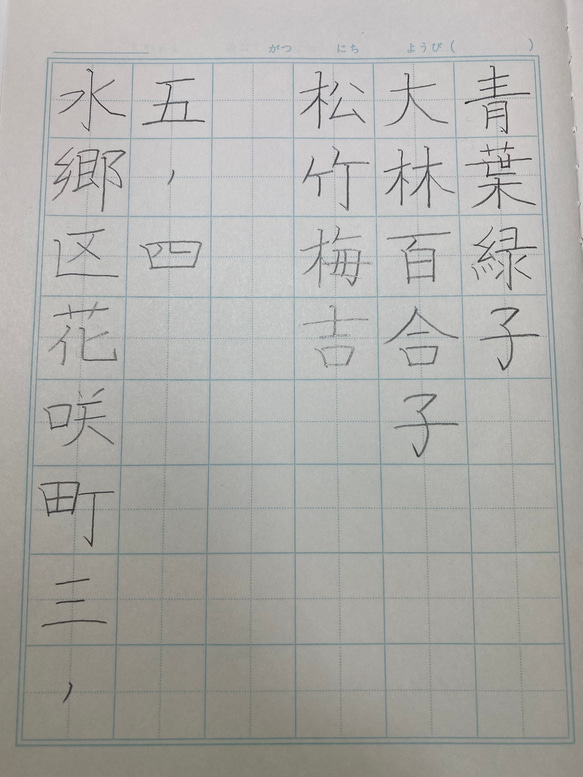 がつ にち ようび( )
青葉緑子
大林百合子
松竹梅吉
五,四
水郷区花咲町三,